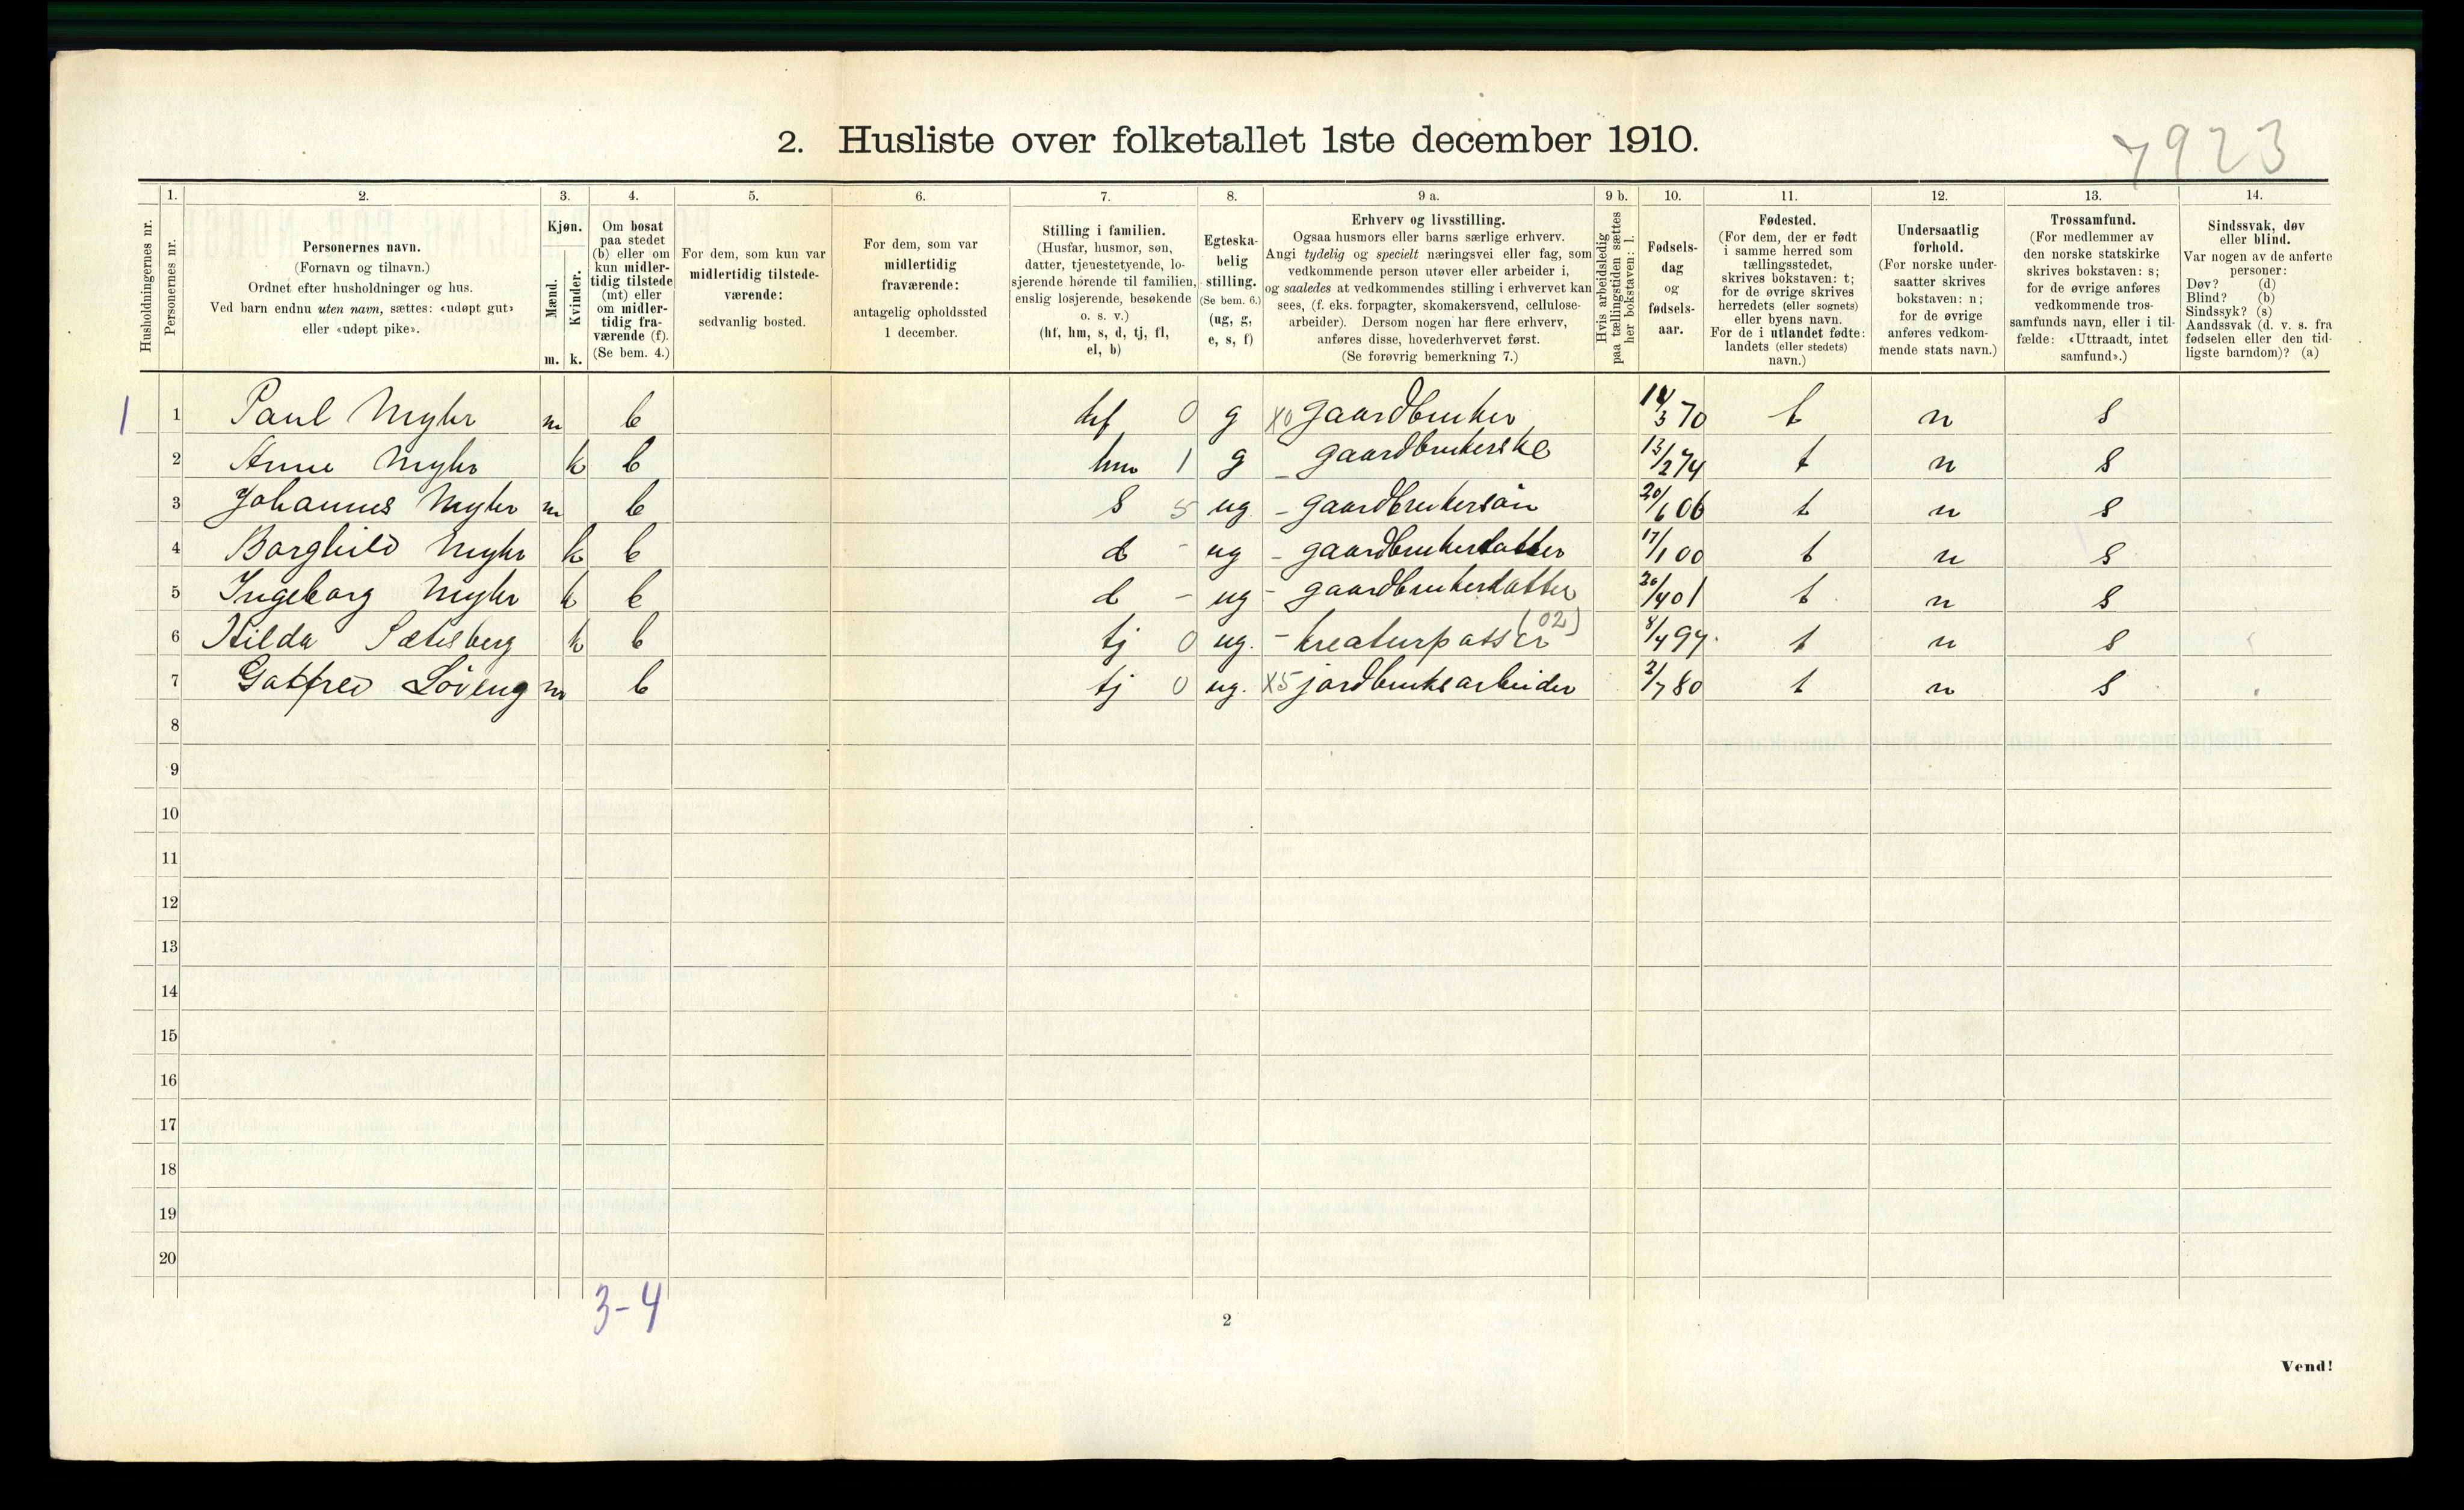 2. Husliste over folketallet 1ste december 1910.
7923
Husholdningernes nr.
1.
Personernes nr.
2.
Personernes navn.
(Fornavn og tilnavn.)
Ordnet efter husholdninger og hus.
Ved barn endnu uten navn, sættes: «udøpt gut»
eller «udøpt pike».
3.
Kjøn.
Mænd.
Kvinder.
m.
k.
4.
Om bosat
paa stedet
(b) eller om
kun midler-
tidig tilstede
(mt) eller
om midler-
tidig fra-
værende (f).
(Se bem. 4.)
5.
For dem, som kun var
midlertidig tilstede-
værende:
sedvanlig bosted.
6.
For dem, som var
midlertidig
fraværende:
antagelig opholdssted
1 december.
7.
Stilling i familien.
(Husfar, husmor, søn,
datter, tjenestetyende, lo-
sjerende hørende til familien,
enslig losjerende, besøkende
o. s. v.)
(hf, hm, s, d, tj, fl,
el, b)
8.
Egteska-
belig
stilling.
(Se bem. 6.)
(ug, g,
e, s, f)
9 a.
Erhverv og livsstilling.
Ogsaa husmors eller barns særlige erhverv.
Angi tydelig og specielt næringsvei eller fag, som
vedkommende person utøver eller arbeider i,
og saaledes at vedkommendes stilling i erhvervet kan
sees, (f. eks. forpagter, skomakersvend, cellulose-
arbeider). Dersom nogen har flere erhverv,
anføres disse, hovederhvervet først.
(Se forøvrig bemerkning 7.)
9 b.
Hvis arbeidsledig
paa tællingstiden sættes
her bokstaven: l.
10.
Fødsels-
dag
og
fødsels-
aar.
11.
Fødested.
(For dem, der er født
i samme herred som
tællingsstedet,
skrives bokstaven: t;
for de øvrige skrives
herredets (eller sognets)
eller byens navn.
For de i utlandet fødte:
landets (eller stedets)
navn.)
12.
Undersaatlig
forhold.
(For norske under-
saatter skrives
bokstaven: n;
for de øvrige
anføres vedkom-
mende stats navn.)
13.
Trossamfund.
(For medlemmer av
den norske statskirke
skrives bokstaven: s;
for de øvrige anføres
vedkommende tros-
samfunds navn, eller i til-
fælde: «Uttraadt, intet
samfund».)
14.
Sindssvak, døv
eller blind.
Var nogen av de anførte
personer:
Døv? (d)
Blind? (b)
Sindssyk? (s)
Aandssvak (d. v. s. fra
fødselen eller den tid-
ligste barndom)? (a)
1 1 Paul Myhr m b hf 0 g X0 gaardbruker 14/3 70 t n s
2 Anne Myhr k b hm 1 g - gaardbrukerske 13/2 74 t n s
3 Johannes Myhr m b s 5 ug - gaardbrukersön 20/6 06 t n s
4 Borghild Myhr k b d - ug - gaardbrukerdatter 17/1 00 t n s
5 Ingeborg Myhr k b d - ug - gaardbrukerdatter 20/4 01 t n s
6 Hilda Sætesberg k b tj 0 ug. - kreaturpasser (02) 8/4 94 t n s
7 Gotfred Löveng m b tj 0 ug. X5 jordbruksarbeider 2/7 80 t n s
8
9
10
11
12
13
14
15
16
17
18
19
20
3-4
2
Vend!